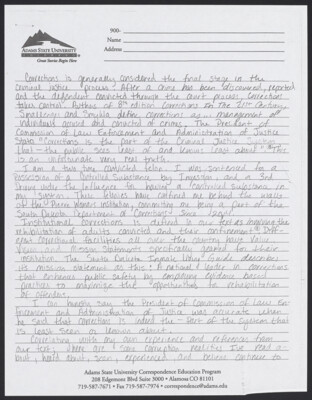 ADAMS STATE UNIVERSITY
COLORADO
Great Stories Begin Here
900-
Name
Address
Corrections is generally considered the final stage in the
criminal justice process. After a crime has been discovered, reported
and the defendant convicted through the court process, corrections
takes control. Authors of 8th edition Corrections in the 21st Century,
Smallenger and Smykla define corrections as management of
individuals accused and convicted of crimes. The President of
Commission of Law Enforcement and Administration of Justice
states "Corrections is the part of the Criminal Justice system
that the public sees least of and knows least about." This
is an unfortunate very real truth.
I am a two time convicted felon. I was sentenced for a
Possession of a Controlled Substance, by Ingestion and a 3rd
driving under the influence to having a controlled substance in
my system. These felonies have confined me behind the walls
of the Pierre Women's institution, committing me as a part of the
South Dakota Department of Corrections since
Institutional Corrections is defined in our text as involving the
rehabilitation of adults convicted and their confinement.
correctional facilities all over the country have
and Mission Statements specifically geared to their
institution. The South Dakota Inmate Living Guide describes
its mission statement as this: A national leader in corrections
that enhances public safety by employing evidence based
practices to maximize the opportunities to rehabilitation
of offenders.
I can humbly say the President of Commission of Law En-
forcement and Administration of Justice was accurate when
he said that corrections is indeed the part of the system that
is least seen or known about.
Correlating with my own experience and references from
our text, there are corruption realities I've read a-
bout, heard about, seen, experienced and believe continue to
Adams State University Correspondence Education Program
208 Edgemont Blvd Suite 3000 • Alamosa CO 81101
719-587-7671 • Fax 719-587-7974 • correspondence@adams.edu